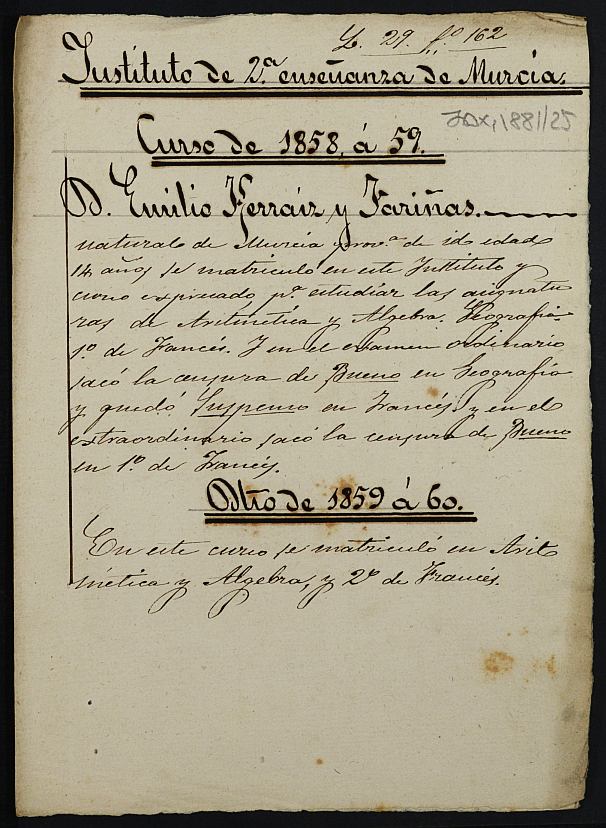 L. 29. fº 162
Instituto de 2.ª enseñanza de Murcia.
JAX, 1881/25
Curso de 1858, á 59.
D. Emilio Herráiz y Fariñas.
natural de Murcia prov.ª de id. edad
14 años se matriculó en este Instituto y
curso expresado p.ª estudiar las asignatu
ras de Aritmética y Algebra. Geografia
1º de Francés. Y en el examen ordinario
sacó la censura de Bueno en Geografia
y quedó Suspenso en Francés y en el
extraordinario sacó la censura de Bueno
en 1º de Francés.
Otro de 1859 á 60.
En este curso se matriculó en Arit
mética y Algebra, y 2º de Francés.